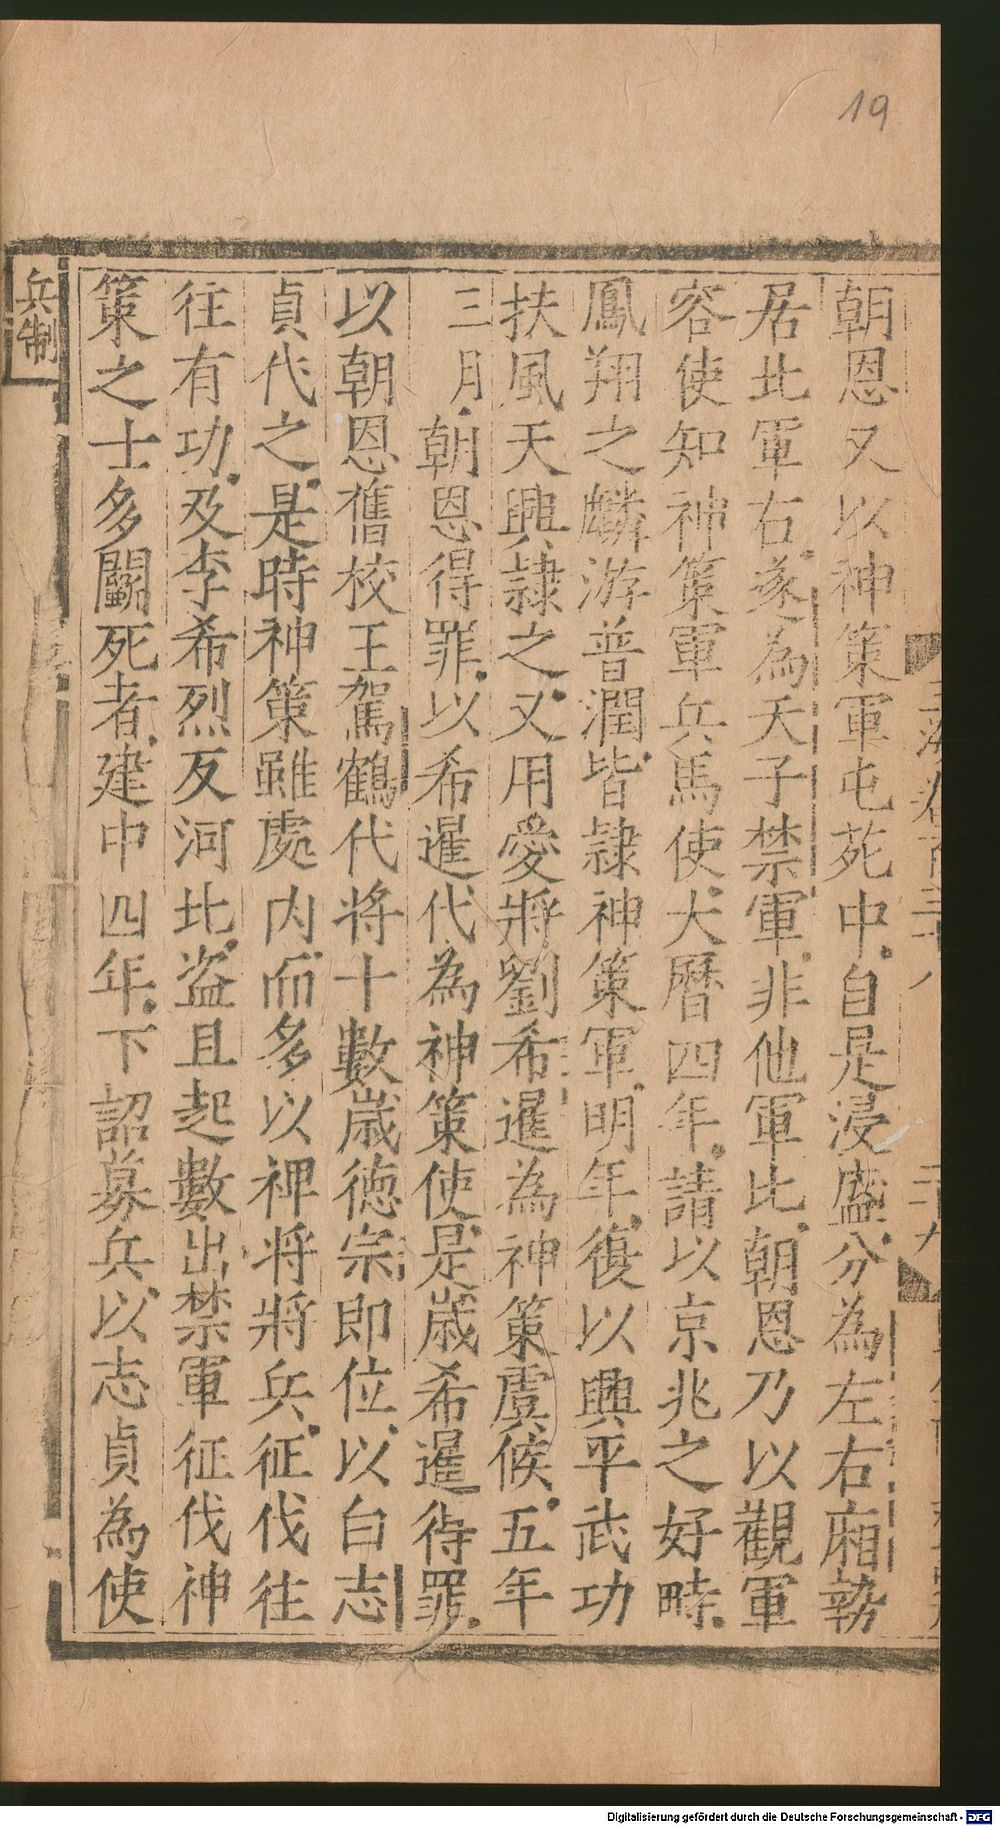 19
朝恩又以神策軍屯苑中自是浸盛分為左右廂勢
居北軍右遂為天子禁軍非他軍比朝恩乃以觀軍
容使知神策軍兵馬使大曆四年請以京兆之好畤
鳳翔之麟游普潤皆隸神策軍明年復以興平武功
扶風天興隸之又用愛將劉希暹為神策虞候五年
三月朝恩得罪以希暹代為神策使是歲希暹得罪
以朝恩舊校王駕鶴代將十數歲德宗即位以白志
貞代之是時神策雖處内而多以裨將將兵征伐往
往有功及李希烈反河北盗且起數出禁軍征伐神
策之士多鬭死者建中四年下詔募兵以志貞為使
兵制
Digitalisierung gefördert durch die Deutsche Forschungsgemeinschaft - DFG